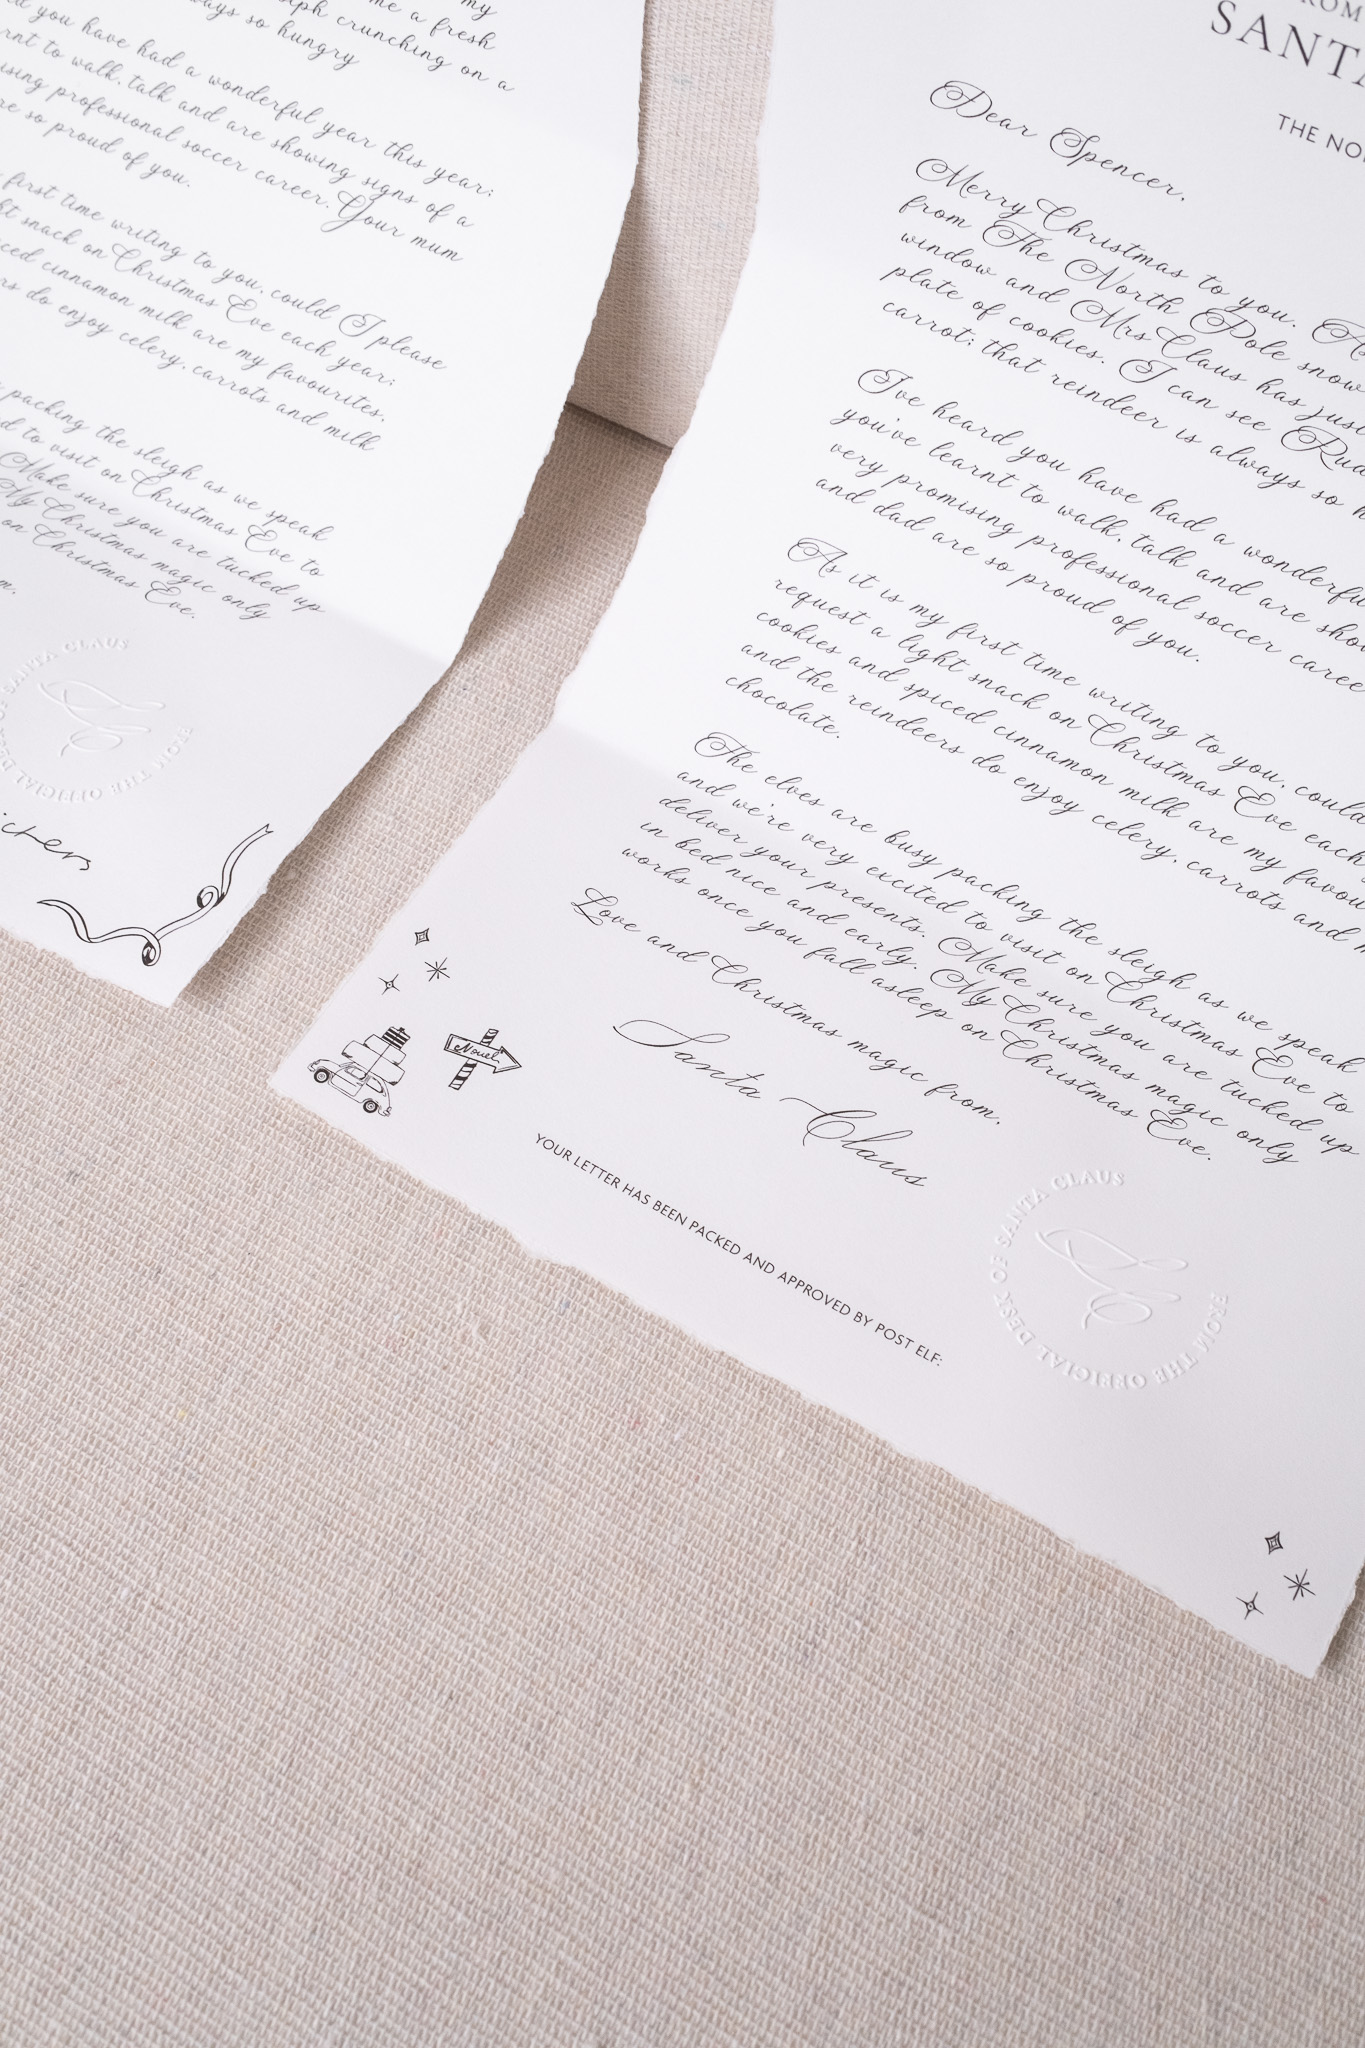 my
me a fresh
crunching on a
so hungry
you have had a wonderful year this year;
to walk, talk and are showing signs of a
professional soccer career. Your mum
so proud of you.
first time writing to you, could I please
snack on Christmas Eve each year;
cinnamon milk are my favourites,
do enjoy celery, carrots and milk
packing the sleigh as we speak
to visit on Christmas Eve to
Make sure you are tucked up
My Christmas magic only
on Christmas Eve.
OF SANTA CLAUS
FROM THE OFFICIAL
SANTA
THE
Dear Spencer,
Merry Christmas to you.
from The North Pole
window and Mrs Claus has just
plate of cookies. I can see
carrot; that reindeer is always so
I've heard you have had a wonderful
you've learnt to walk, talk and are
very promising professional soccer career
and dad are so proud of you.
As it is my first time writing to you, could
request a light snack on Christmas Eve each
cookies and spiced cinnamon milk are my
and the reindeers do enjoy celery, carrots and
chocolate.
The elves are busy packing the sleigh as we speak
and we're very excited to visit on Christmas Eve to
deliver your presents. Make sure you are tucked up
in bed nice and early. My Christmas magic only
works once you fall asleep on Christmas Eve.
Love and Christmas magic from,
Santa Claus
Nouel
YOUR LETTER HAS BEEN PACKED AND APPROVED BY POST ELF:
FROM THE OFFICIAL DESK OF SANTA CLAUS
SC